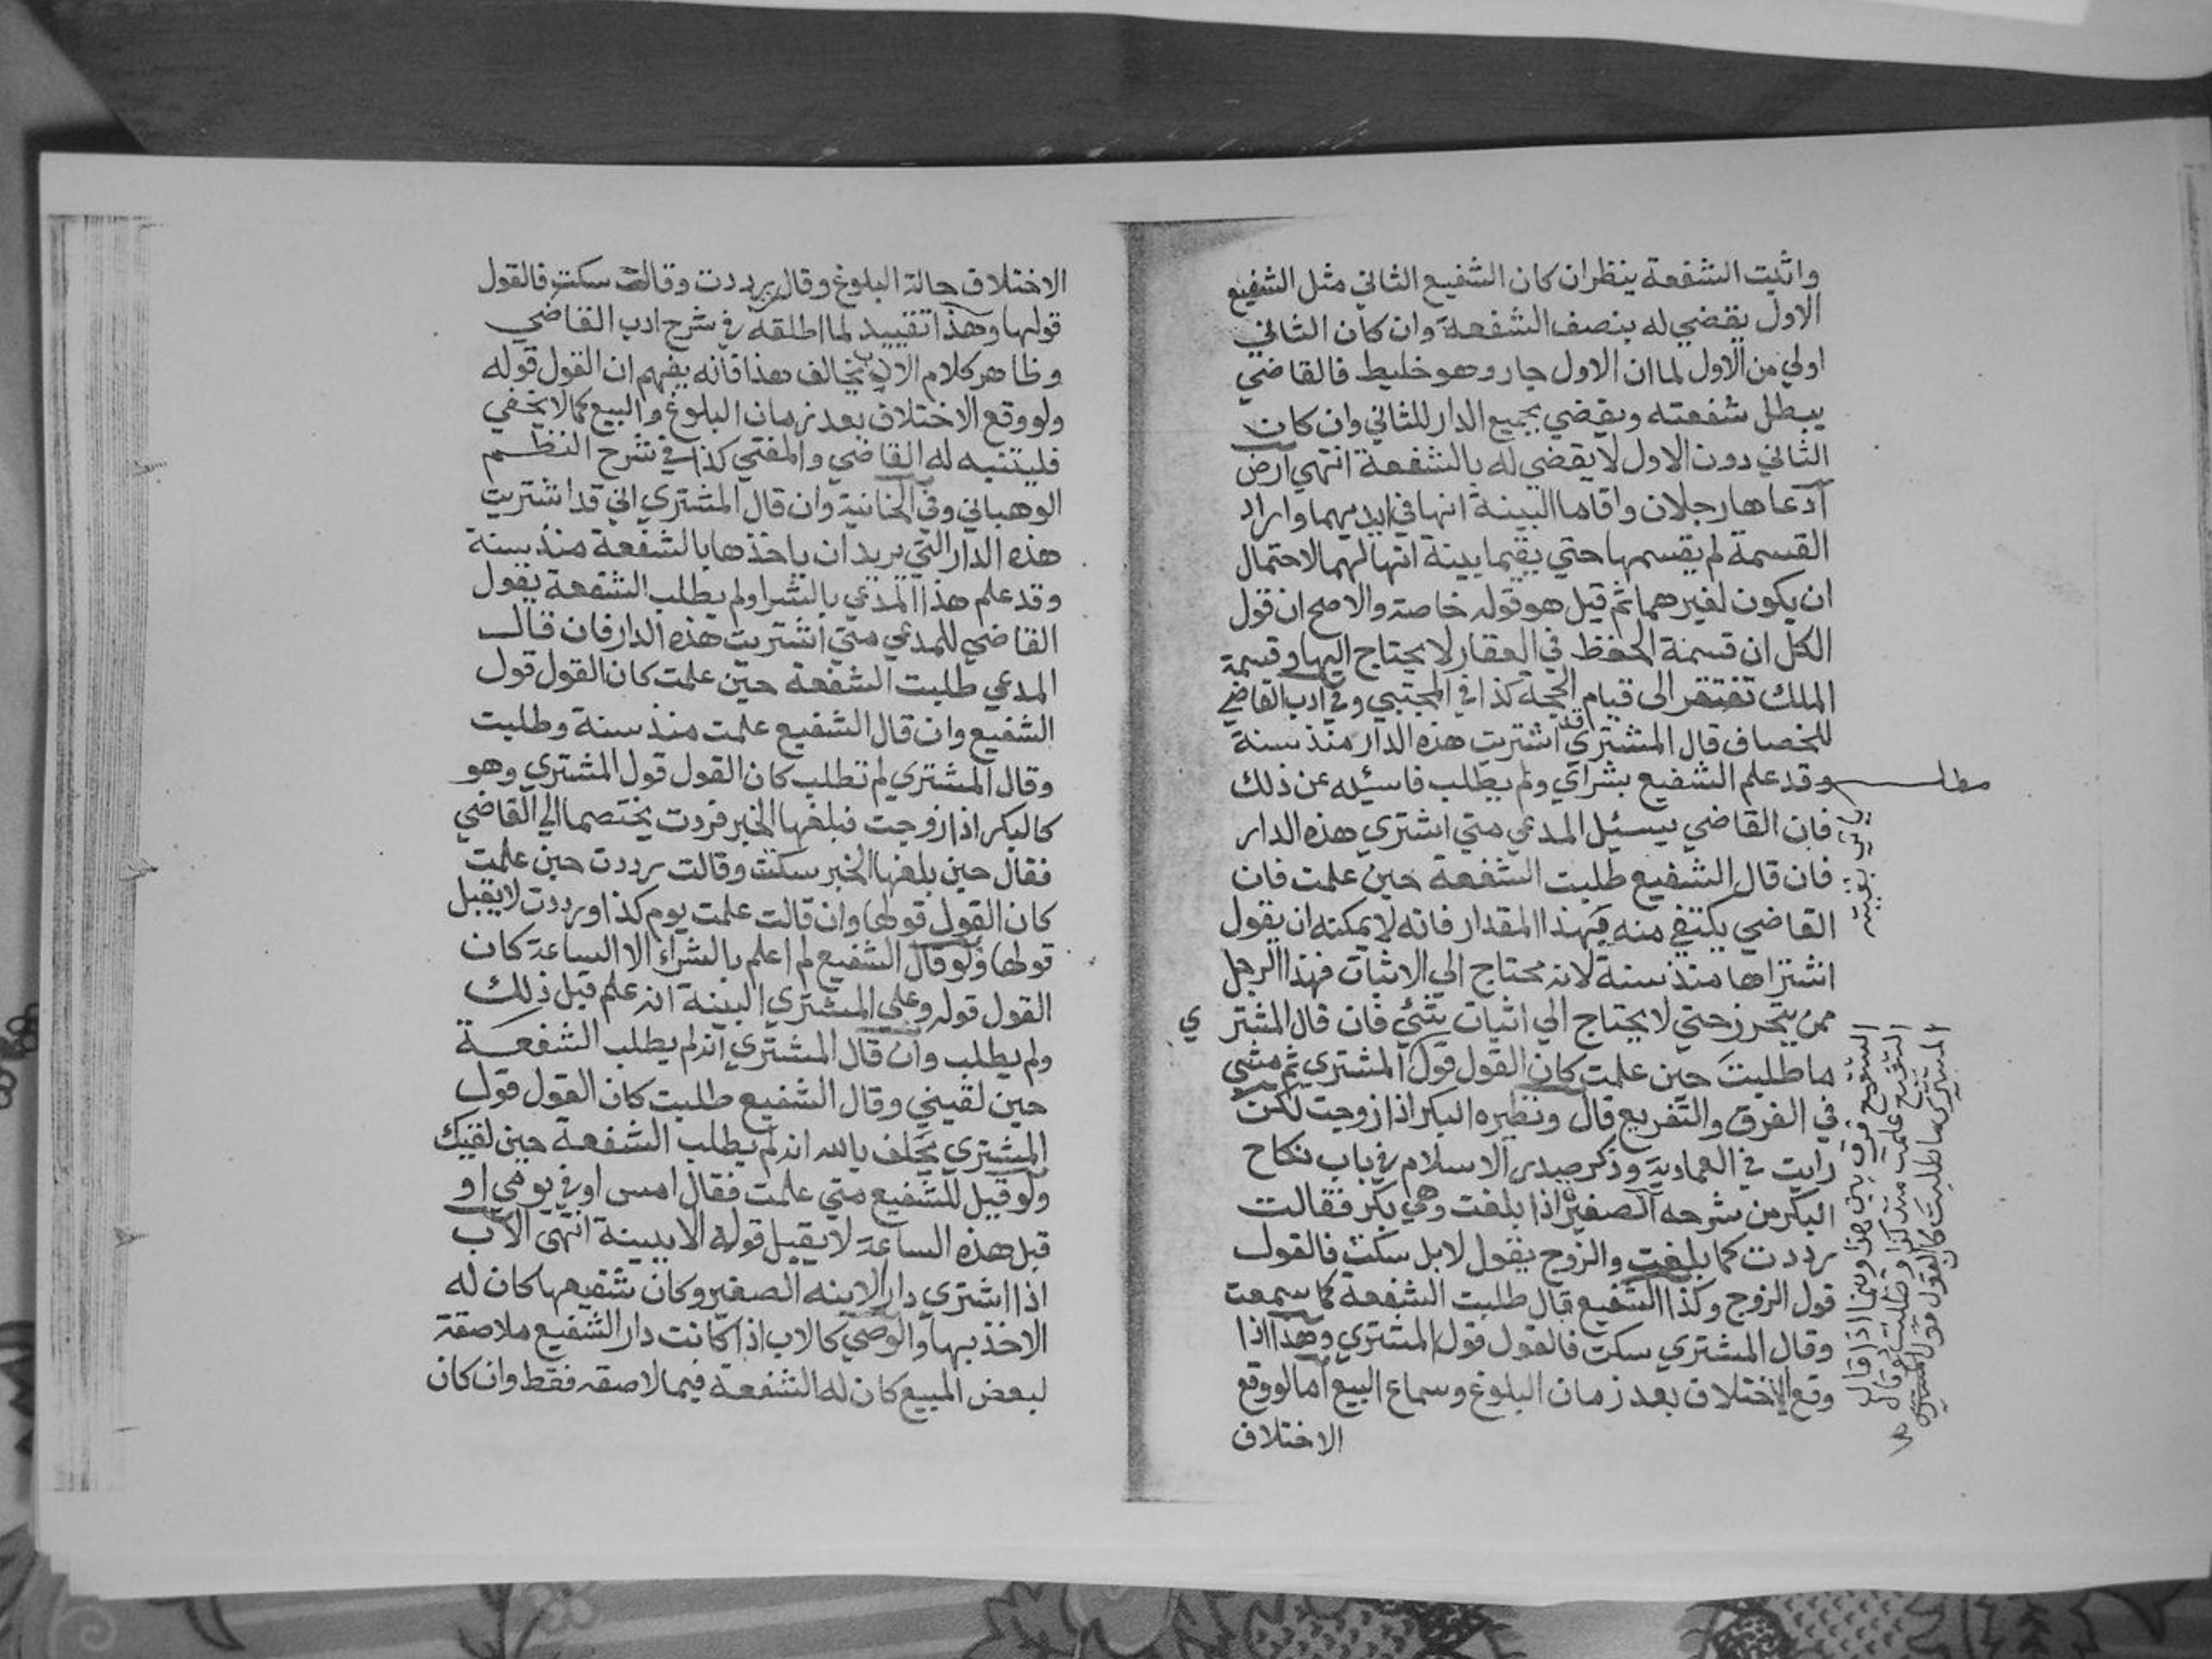 واثبت الشفعة ينظر ان كان الشفيع الثاني مثل الشفيع
الاول يقضي له بنصف الشفعة وان كان الثاني
اولي من الاول لما ان الاول جار وهو خليط فالقاضي
يبطل شفعته ويقضي بجميع الدار للثاني وان كان
الثاني دون الاول لا يقضي له بالشفعة انتهي ارض
ادعاها رجلان واقاما البينة انها في ايديهما واراد
القسمة لم يقسمها حتي يقيما بينة انها لهما لاحتمال
ان يكون لغيرهما ثم قيل هو قوله خاصة والاصح ان قول
الكل ان قسمة الحفظ في العقار لا يحتاج اليها وقسمة
الملك تفتقر الى قيام الحجة كذا في المجتبي وفي ادب القاضي
للخصاف قال المشتري قد اشتريت هذه الدار منذ سنة
مطلب
وقد علم الشفيع بشراي ولم يطلب فاسئله عن ذلك
فان القاضي يسئل المدعي متي اشتري هذه الدار
فان قال الشفيع طلبت الشفعة حين علمت فان
القاضي يكتفي منه بهذا المقدار فانه لا يمكنه ان يقول
اشتراها منذ سنة لانه محتاج الي الاثبات فهذا الرجل
ممن يتحرز حتي لا يحتاج الي اثبات شئي فان قال المشتري
ما طلبت حين علمت كان القول قول المشتري ثم مشي
في الفرق والتفريع قال ونظيره البكر اذا زوجت لكن
رايت في العمادية وذكر صدر الاسلام في باب نكاح
البكر من شرحه الصغيرة اذا بلغت وهي بكر فقالت
رددت كما بلغت والزوج يقول لا بل سكت فالقول
قول الزوج وكذا الشفيع قال طلبت الشفعة كما سمعت
وقال المشتري سكت فالقول قول المشتري وهذا اذا
وقع الاختلاف بعد زمان البلوغ وسماع البيع اما لو وقع
الاختلاف
الشفيع فرق بين هذا وبينما اذا قال
الشفيع علمت منذ كذا وطلبت وقال
المشتري ما طلبت كان القول قول المشتري
الاختلاف حالة البلوغ وقال رددت وقالت سكت فالقول
قولها وهذا تقييد لما اطلقه في شرح ادب القاضي
وظاهر كلام الاب يخالف هذا فانه يفهم ان القول قوله
ولو وقع الاختلاف بعد زمان البلوغ والبيع كما لا يخفي
فليتنبه له القاضي والمفتي كذا في شرح النظم
الوهباني وفي الخانية وان قال المشتري اني قد اشتريت
هذه الدار التي يريد ان ياخذها بالشفعة منذ سنة
وقد علم هذا المدعي بالشرا ولم يطلب الشفعة يقول
القاضي للمدعي متي اشتريت هذه الدار فان قال
المدعي طلبت الشفعة حين علمت كان القول قول
الشفيع وان قال الشفيع علمت منذ سنة وطلبت
وقال المشتري لم تطلب كان القول قول المشتري وهو
كالبكر اذا زوجت فبلغها الخبر فردت يختصما الي القاضي
فقال حين بلغها الخبر سكتت وقالت رددت حين علمت
كان القول قولها وان قالت علمت يوم كذا ورددت لا يقبل
قولها ولو قال الشفيع لم اعلم بالشراء الا الساعة كان
القول قوله وعلي المشتري البينة انه علم قبل ذلك
ولم يطلب وان قال المشتري انه لم يطلب الشفعة
حين لقيني وقال الشفيع طلبت كان القول قول
المشتري يحلف بالله انه لم يطلب الشفعة حين لقيك
ولو قيل للشفيع متي علمت فقال امس او في يومي او
قبل هذه الساعة لا يقبل قوله الا ببينة انتهى الاب
اذا اشتري دار الابنه الصغير وكان شفيعها كان له
الاخذ بها والوصي كالاب اذا كانت دار الشفيع ملاصقة
لبعض المبيع كان له الشفعة فيما لاصقه فقط وان كان